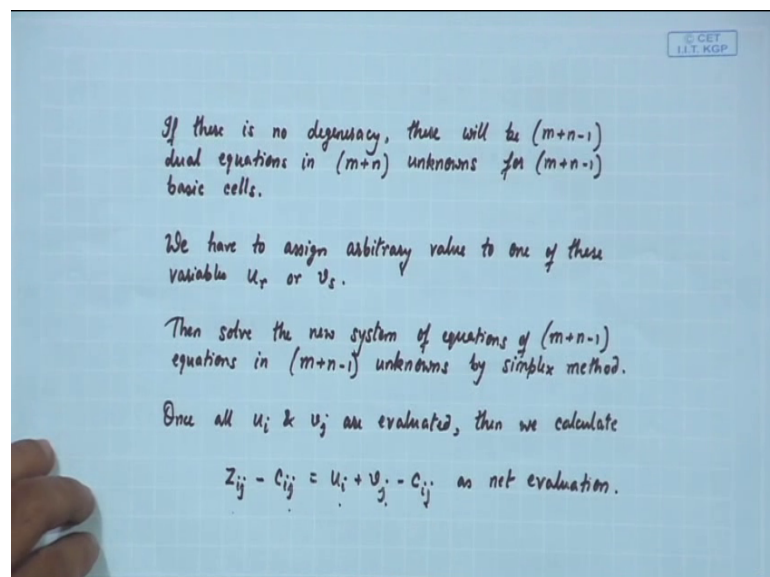 © CET
I.I.T. KGP
If there is no degeneracy, there will be (m+n-1)
dual equations in (m+n) unknowns for (m+n-1)
basic cells.
We have to assign arbitrary value to one of these
variables u_r or v_s.
Then solve the new system of equations of (m+n-1)
equations in (m+n-1) unknowns by simplex method.
Once all u_i & v_j are evaluated, then we calculate
Z_ij - C_ij = u_i + v_j - C_ij as net evaluation.